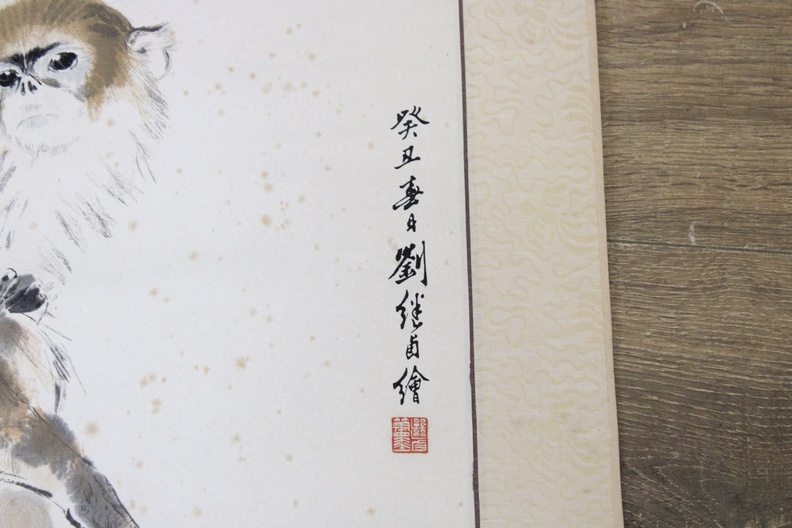 癸丑春日劉继卣繪